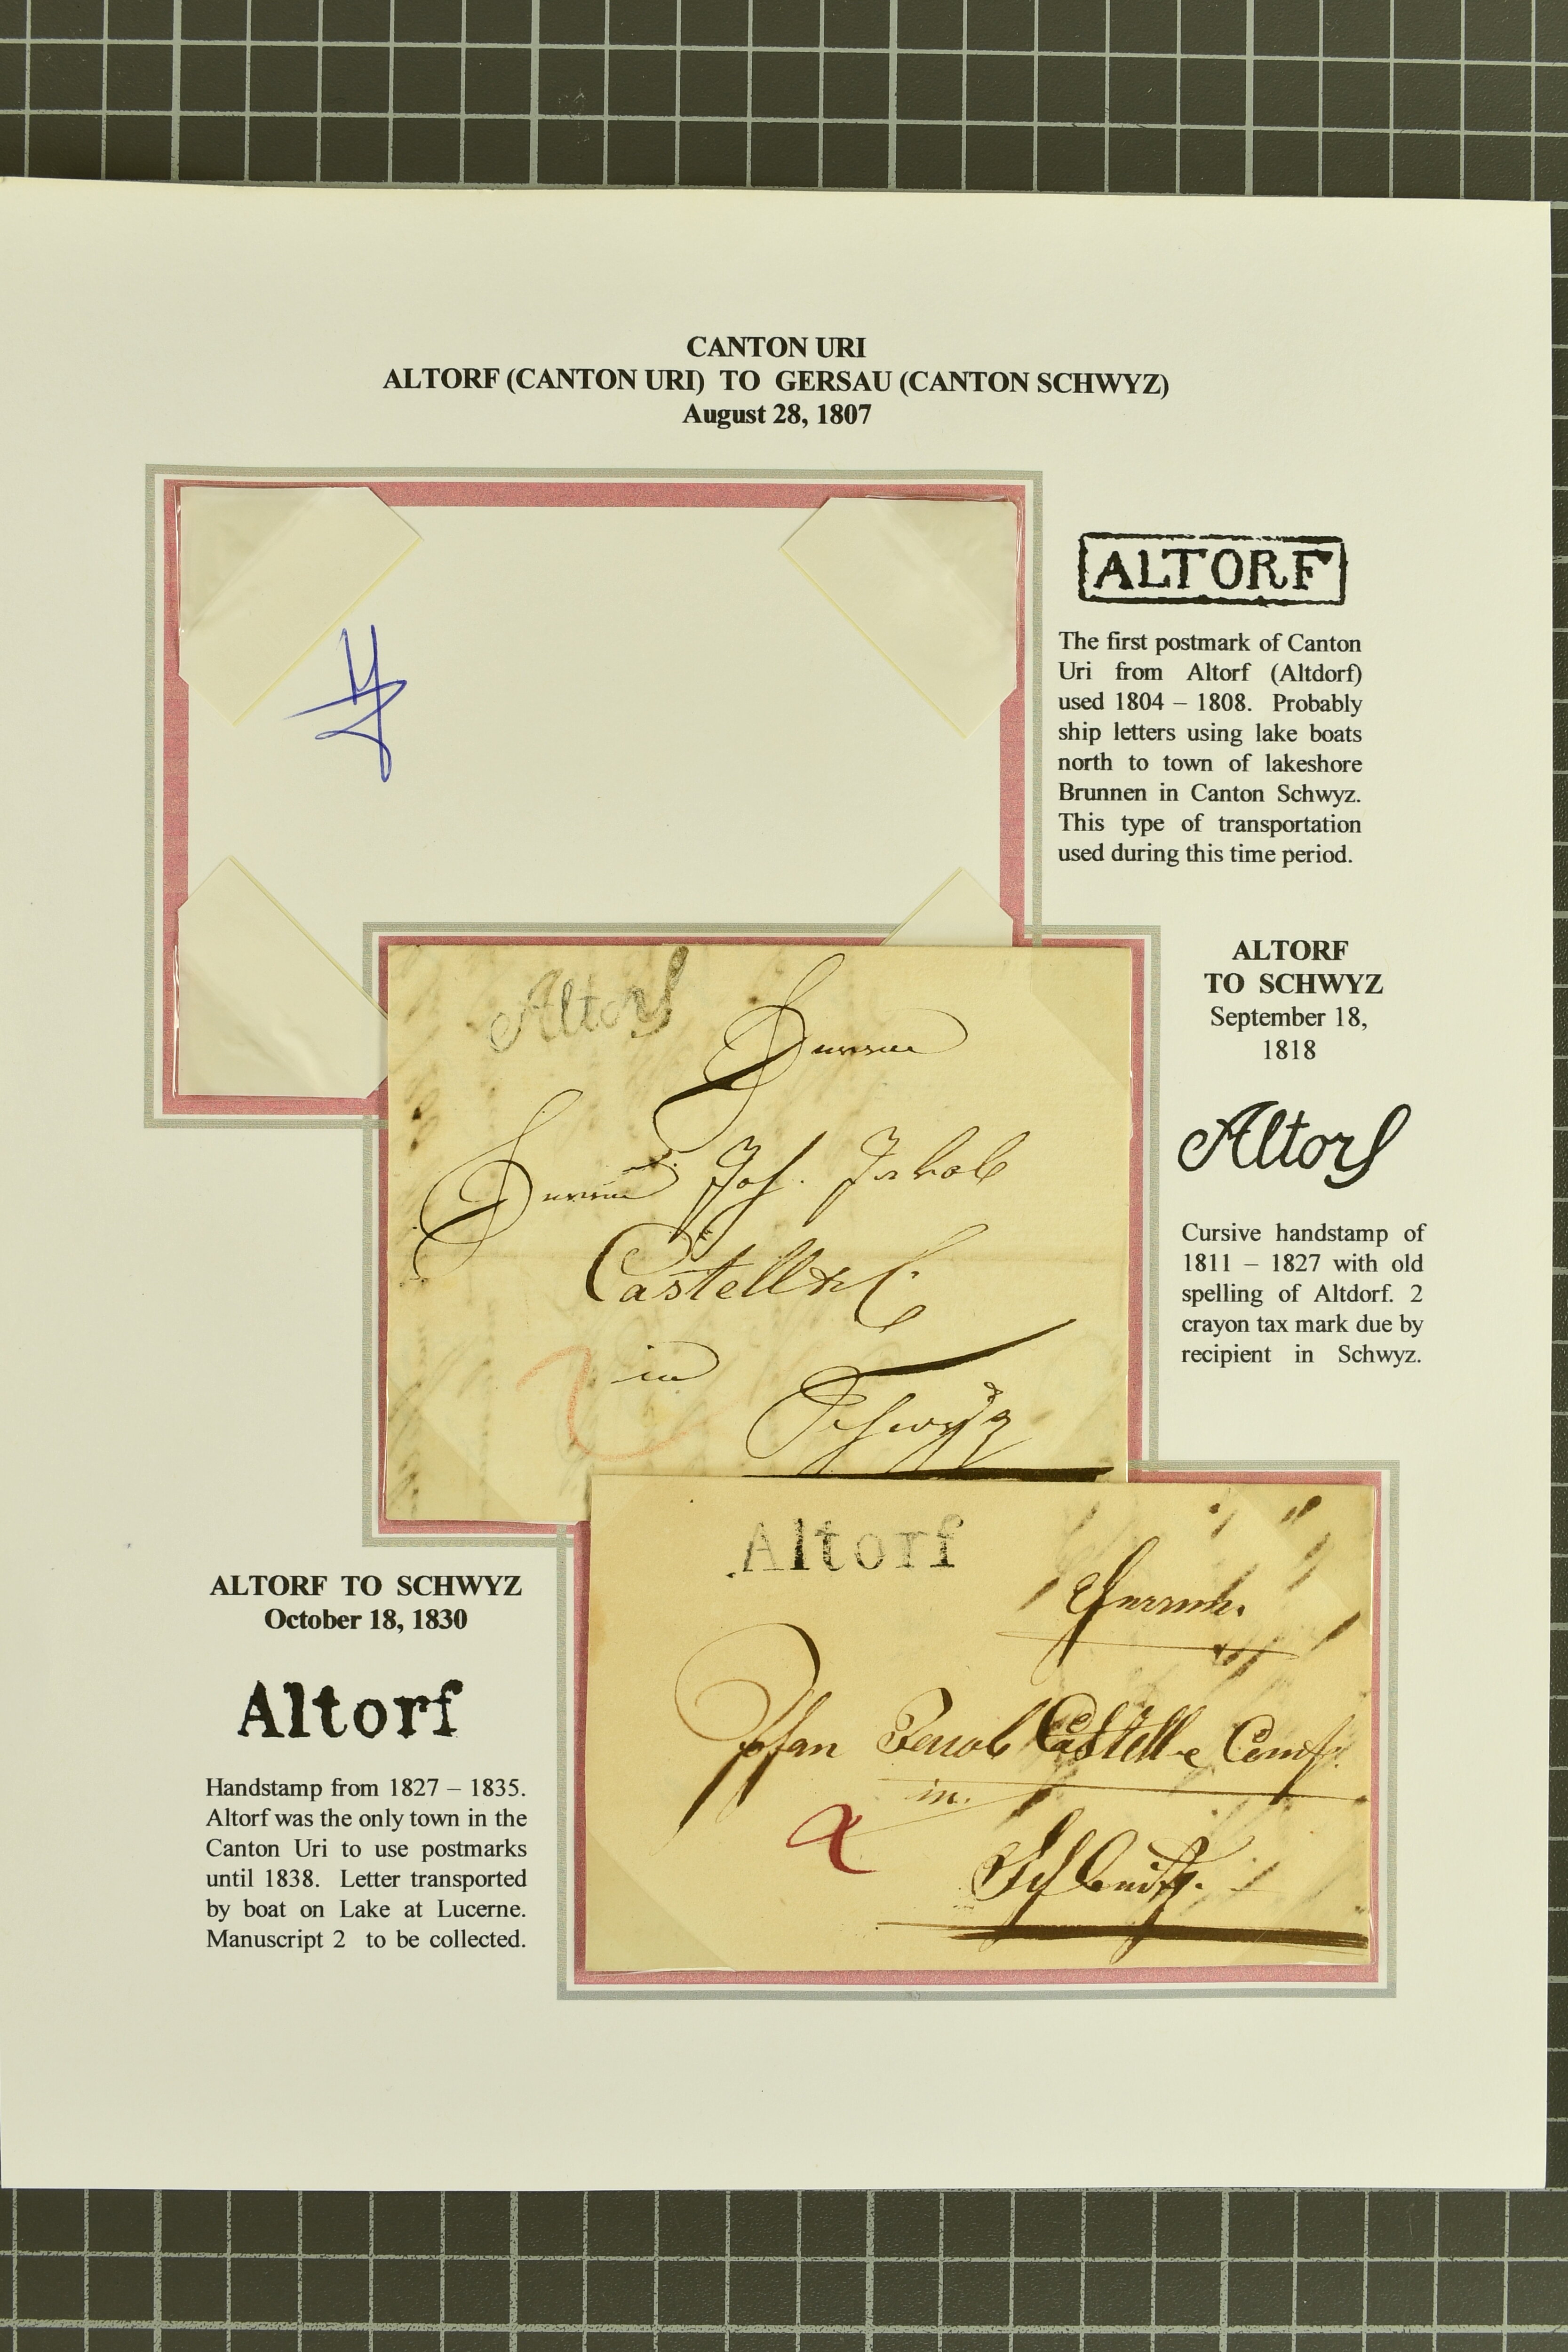 CANTON URI
ALTORF (CANTON URI) TO GERSAU (CANTON SCHWYZ)
August 28, 1807
ALTORF
The first postmark of Canton
Uri from Altorf (Altdorf)
used 1804 – 1808. Probably
ship letters using lake boats
north to town of lakeshore
Brunnen in Canton Schwyz.
This type of transportation
used during this time period.
ALTORF
TO SCHWYZ
September 18,
1818
Altorf
Cursive handstamp of
1811 – 1827 with old
spelling of Altdorf. 2
crayon tax mark due by
recipient in Schwyz.
Altorf
Jos. Jakob
Castell & C.
in
2
Schwyz
ALTORF TO SCHWYZ
October 18, 1830
Altorf
Handstamp from 1827 – 1835.
Altorf was the only town in the
Canton Uri to use postmarks
until 1838. Letter transported
by boat on Lake at Lucerne.
Manuscript 2 to be collected.
Altorf
Castell
in
2